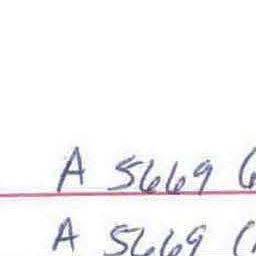 A 5669
A 5669